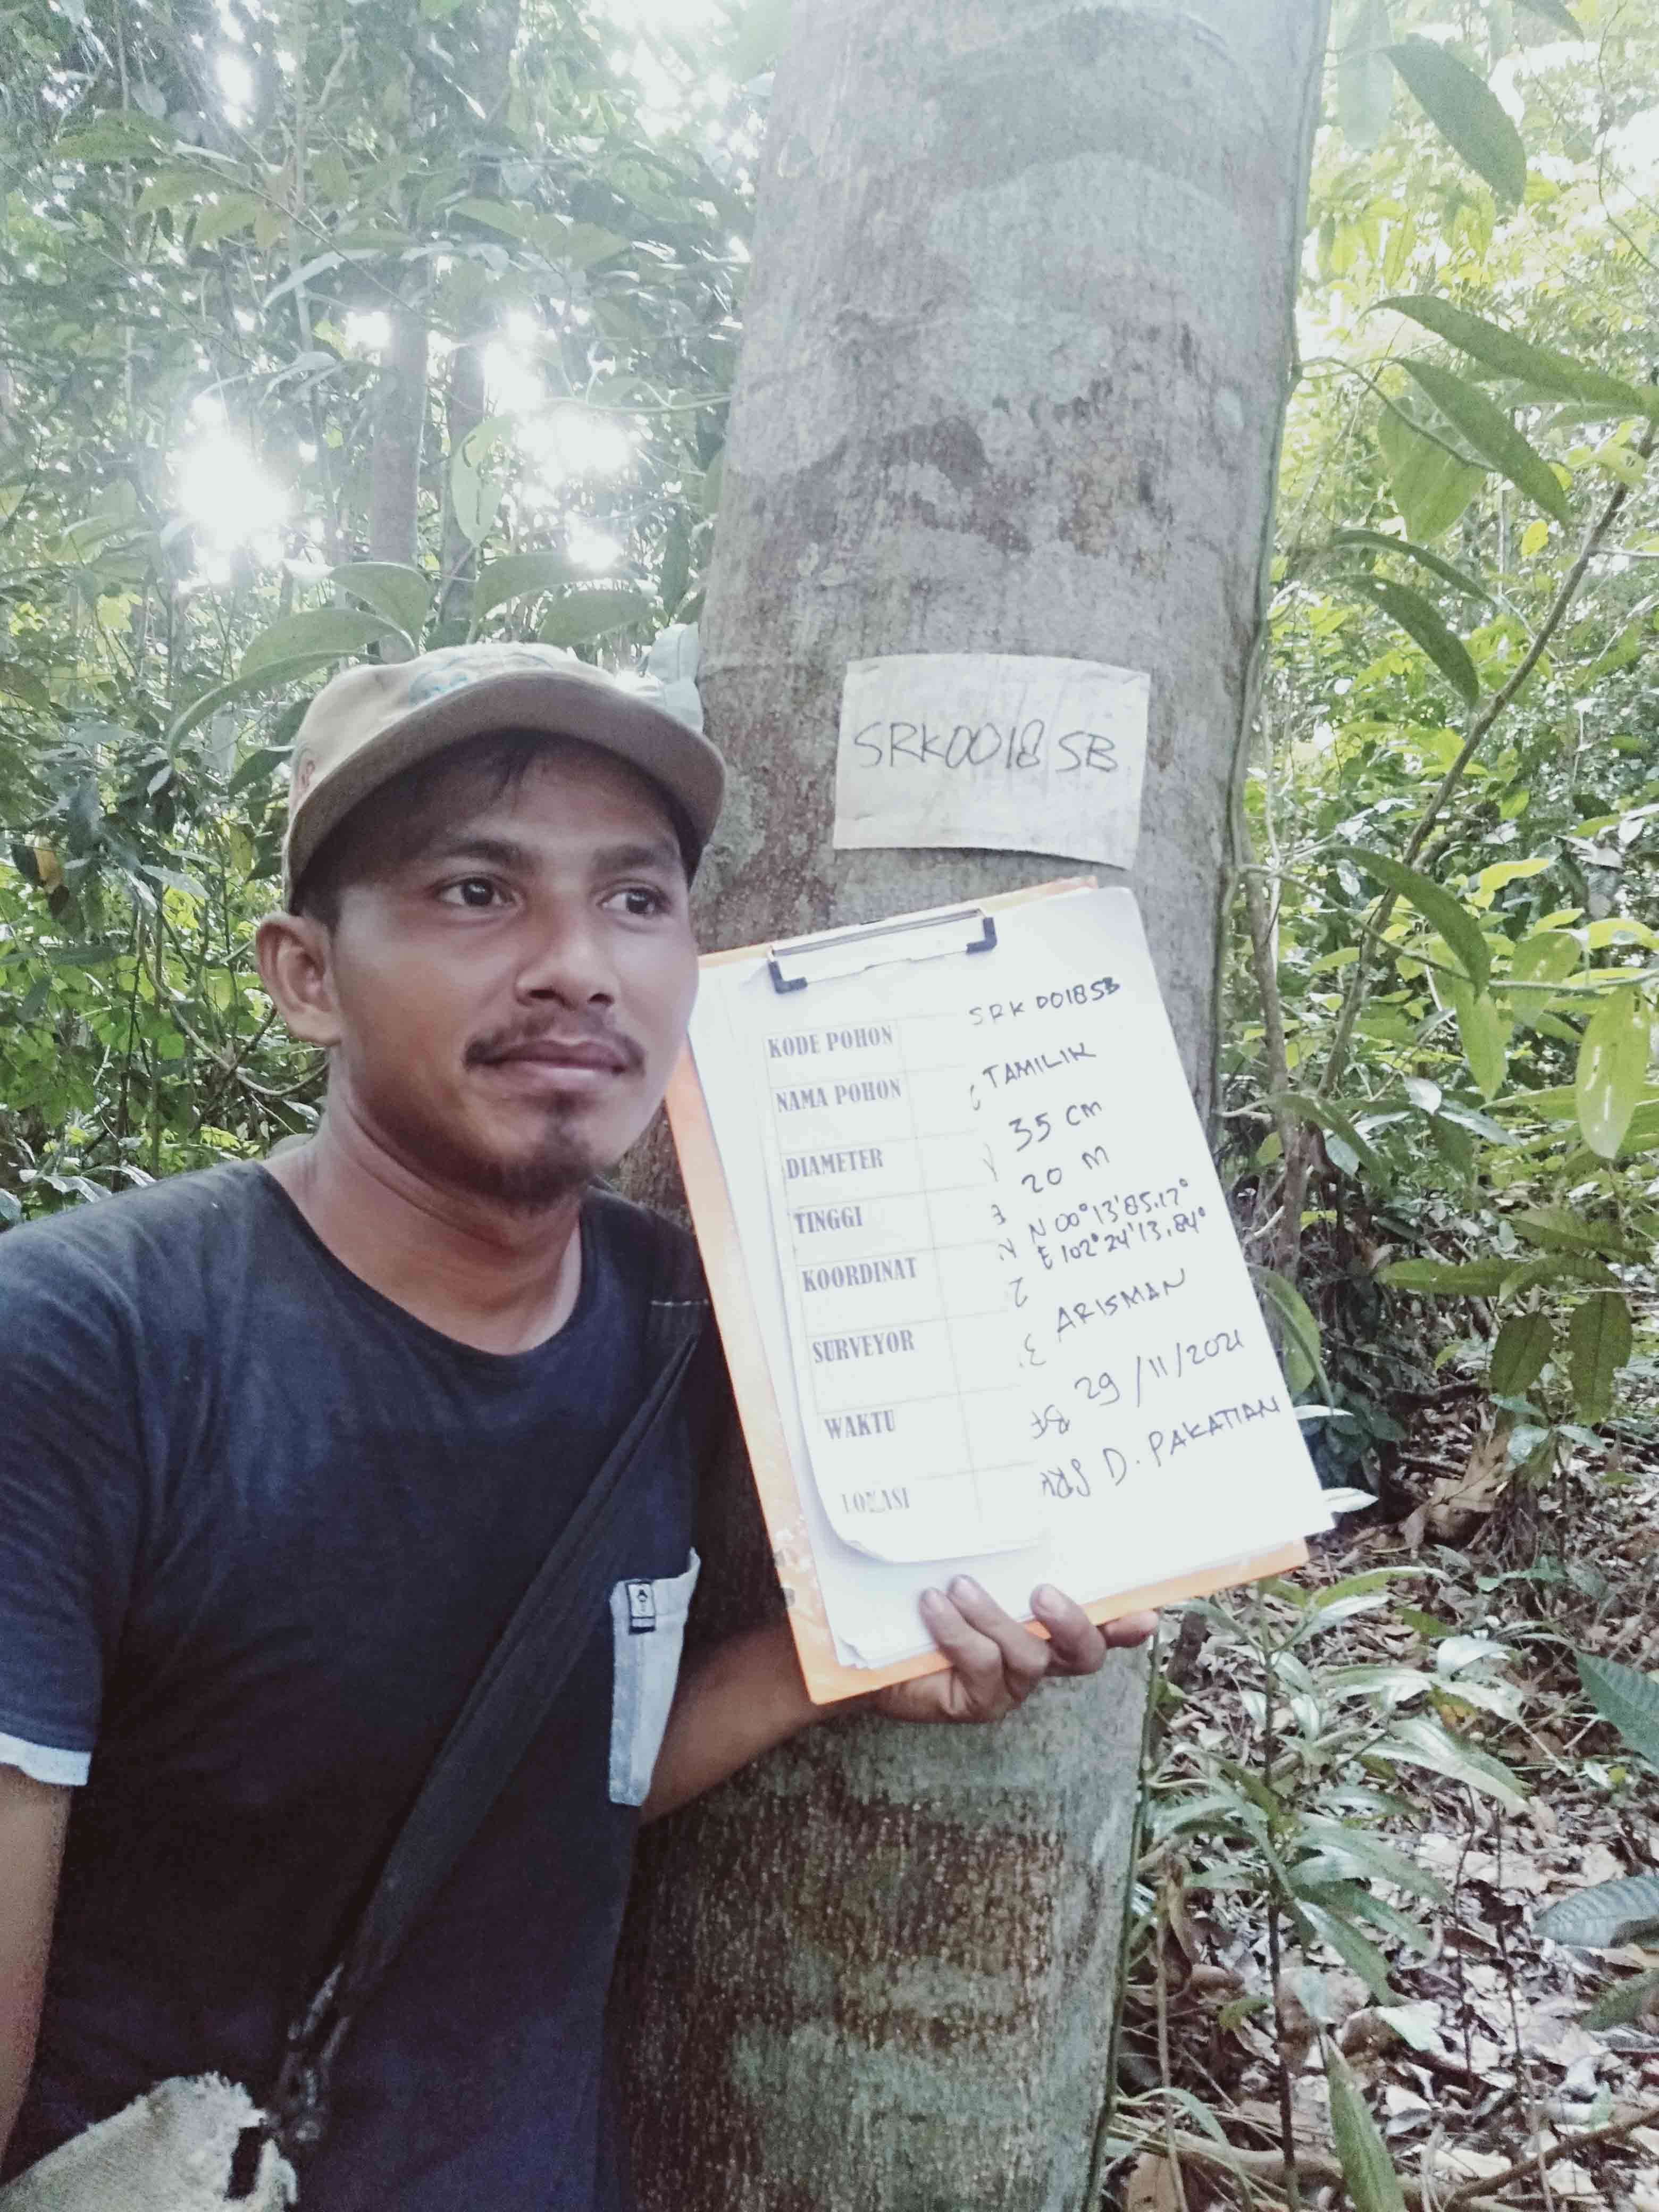 SRK0018 SB
KODE POHON SRK 0018SB
NAMA POHON TAMILIK
DIAMETER 35 CM
TINGGI 20 M
KOORDINAT N 00°13'85.17"
E 102°24'13.84"
SURVEYOR ARISMAN
WAKTU 29/11/2021
LOKASI D. PAKATIAN